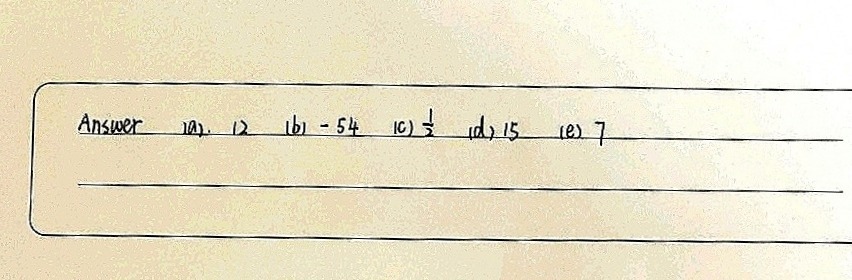 Answer (a). 12 (b) -54 (c) 1/2 (d) 15 (e) 7